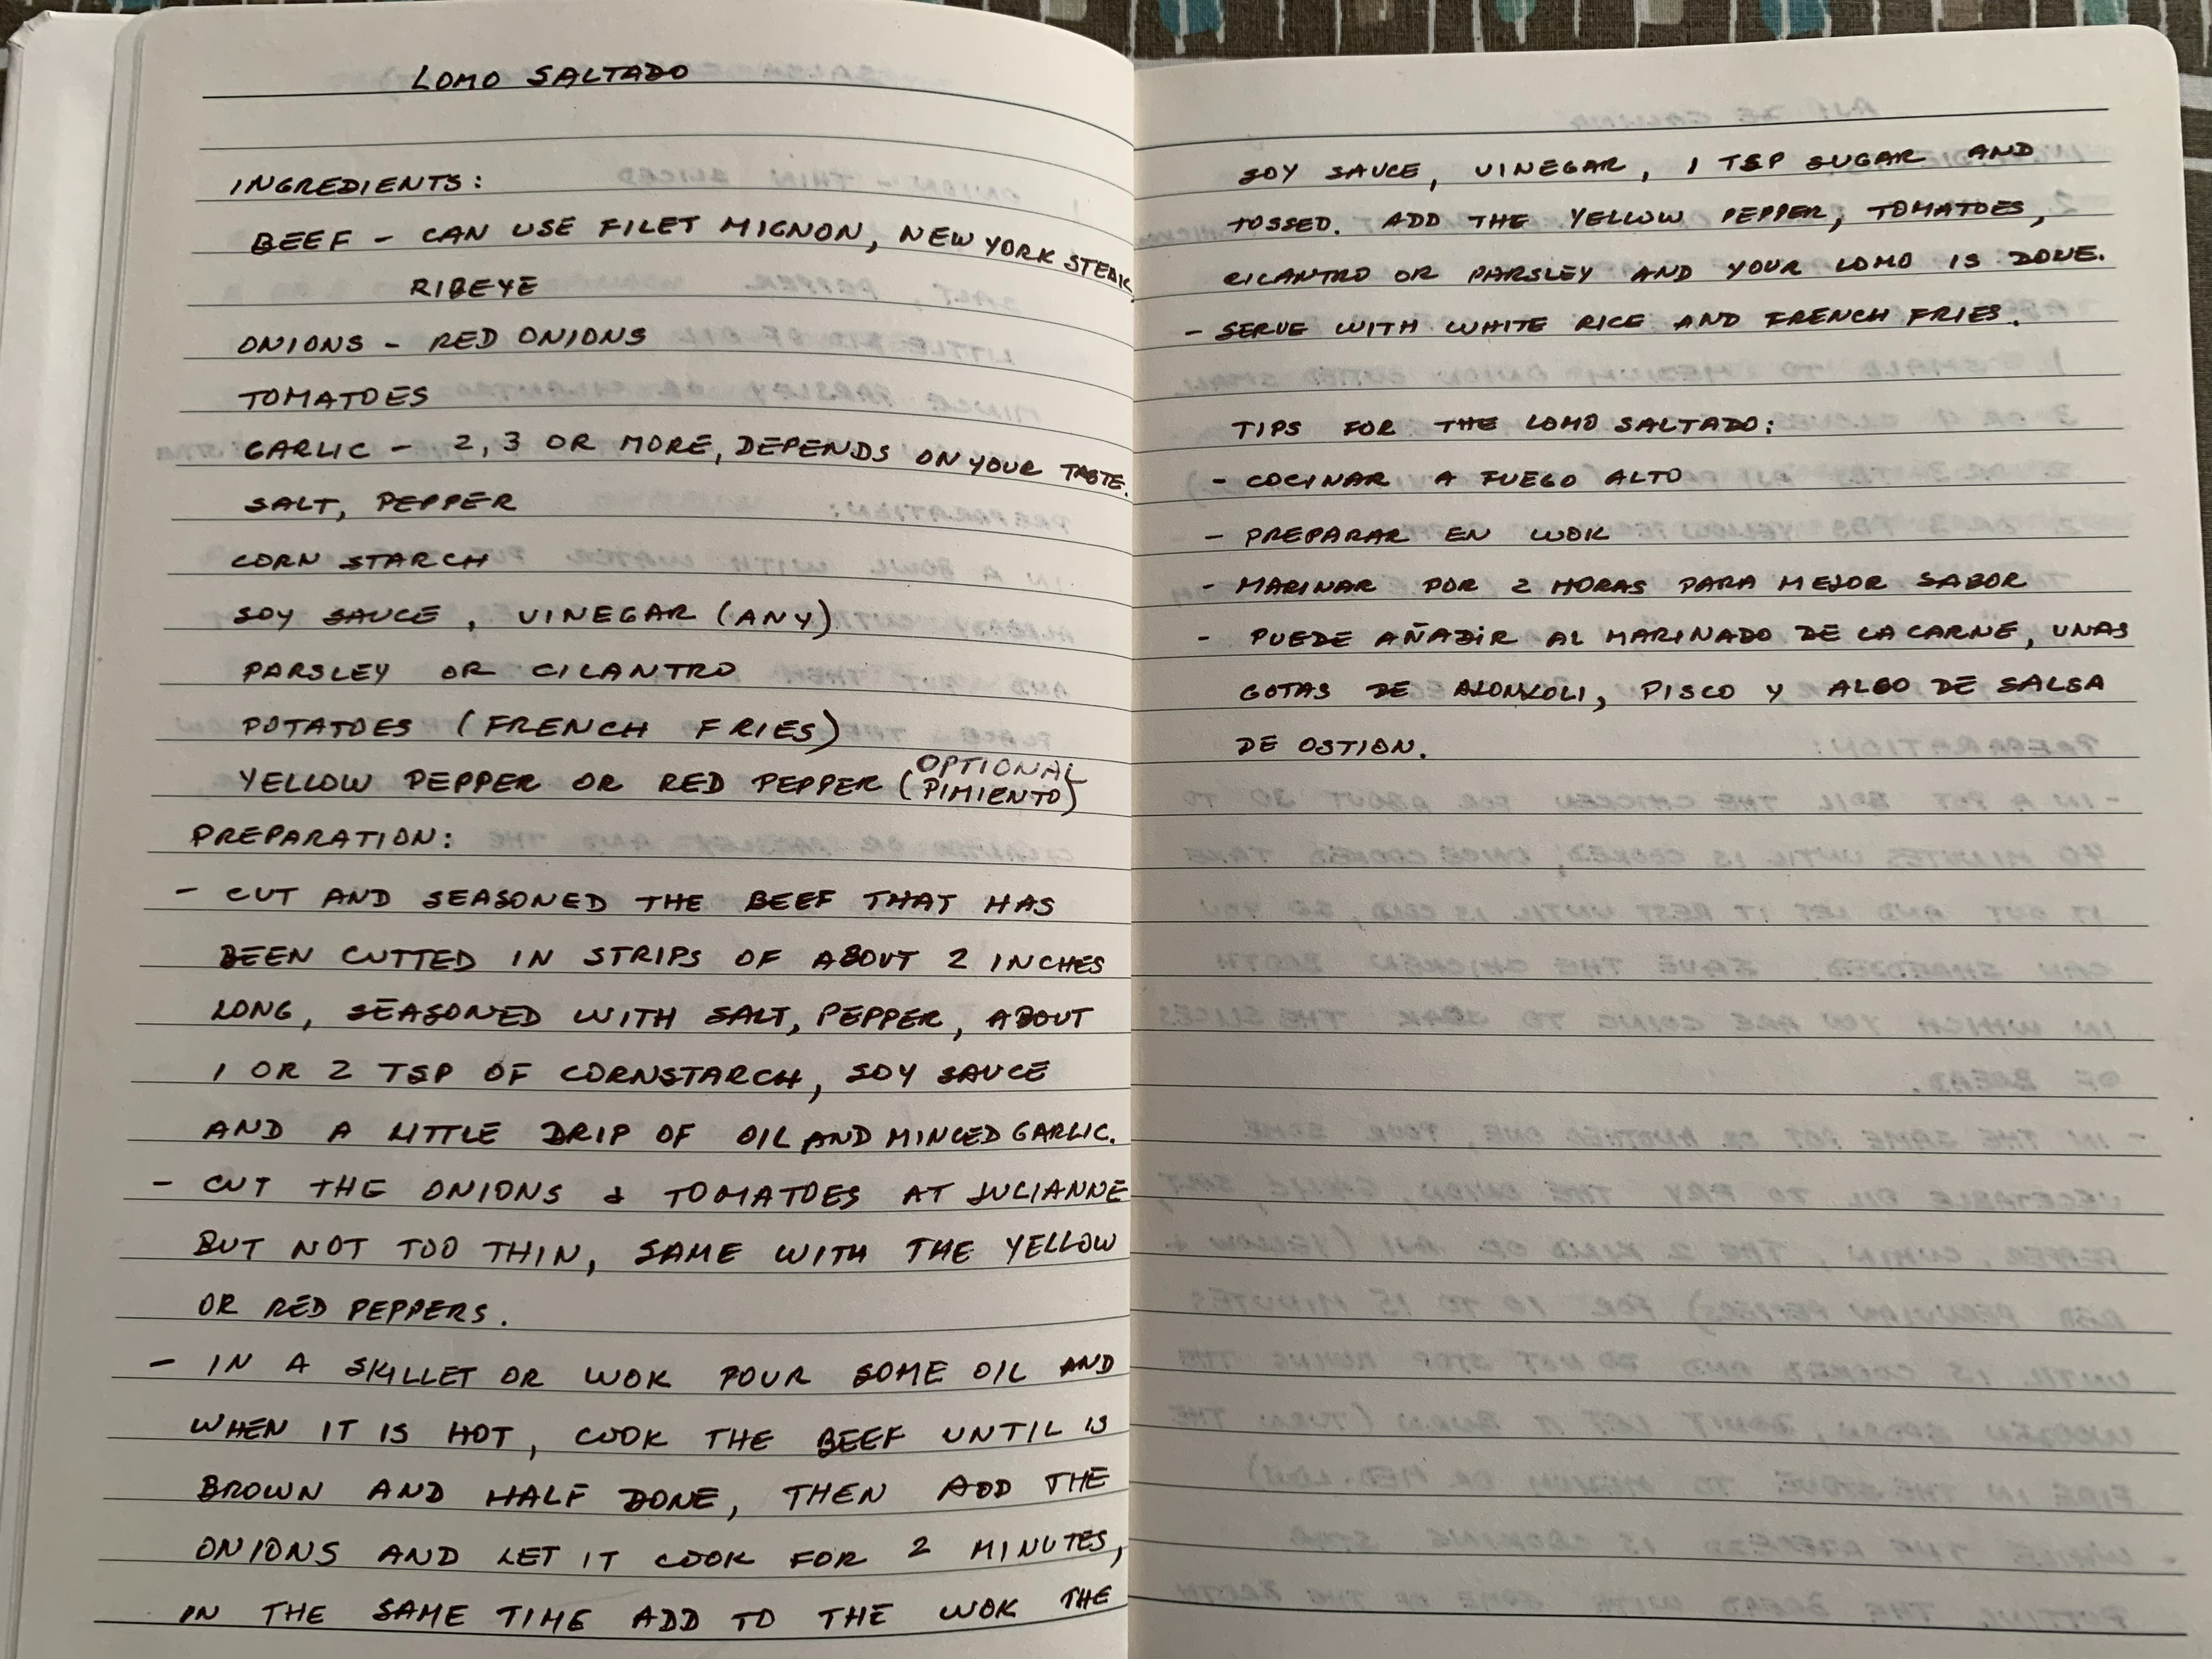 LOMO SALTADO
INGREDIENTS:
BEEF - CAN USE FILET MIGNON, NEW YORK STEAK,
RIBEYE
ONIONS - RED ONIONS
TOMATOES
GARLIC - 2, 3 OR MORE, DEPENDS ON YOUR TASTE.
SALT, PEPPER
CORN STARCH
SOY SAUCE, VINEGAR (ANY)
PARSLEY OR CILANTRO
POTATOES (FRENCH FRIES)
OPTIONAL
YELLOW PEPPER OR RED PEPPER (PIMIENTO)
PREPARATION:
- CUT AND SEASONED THE BEEF THAT HAS
BEEN CUTTED IN STRIPS OF ABOUT 2 INCHES
LONG, SEASONED WITH SALT, PEPPER, ABOUT
1 OR 2 TSP OF CORNSTARCH, SOY SAUCE
AND A LITTLE DRIP OF OIL AND MINCED GARLIC.
- CUT THE ONIONS & TOMATOES AT JULIANNE
BUT NOT TOO THIN, SAME WITH THE YELLOW
OR RED PEPPERS.
- IN A SKILLET OR WOK POUR SOME OIL AND
WHEN IT IS HOT, COOK THE BEEF UNTIL IS
BROWN AND HALF DONE, THEN ADD THE
ONIONS AND LET IT COOK FOR 2 MINUTES,
IN THE SAME TIME ADD TO THE WOK THE
SOY SAUCE, VINEGAR, 1 TSP SUGAR AND
TOSSED. ADD THE YELLOW PEPPER, TOMATOES,
CILANTRO OR PARSLEY AND YOUR LOMO IS DONE.
- SERVE WITH WHITE RICE AND FRENCH FRIES.
TIPS FOR THE LOMO SALTADO:
- COCINAR A FUEGO ALTO
- PREPARAR EN WOK
- MARINAR POR 2 HORAS PARA MEJOR SABOR
- PUEDE AÑADIR AL MARINADO DE LA CARNE, UNAS
GOTAS DE AJONJOLI, PISCO Y ALGO DE SALSA
DE OSTION.